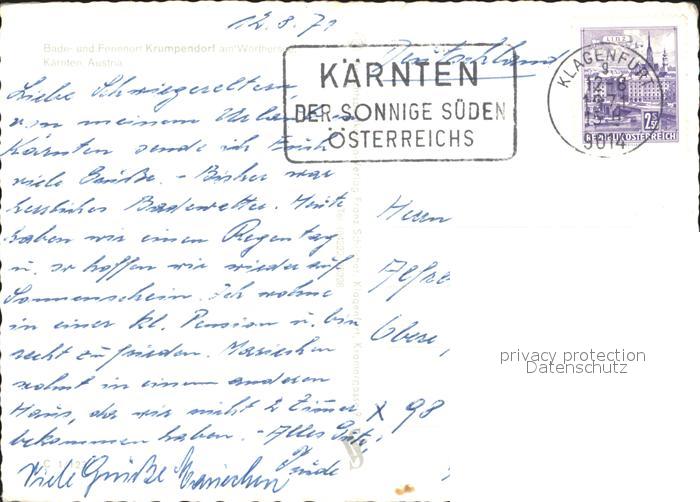 12.8.71
Bade- und Ferienort Krumpendorf am Wörthersee
Kärnten, Austria
Deutschland
KÄRNTEN
DER SONNIGE SÜDEN
ÖSTERREICHS
LINZ
KLAGENFURT
9014
REPUBLIK ÖSTERREICH
Liebe Schwiegereltern,
von meinem Urlaub in
Kärnten sende ich Euch
viele Grüße. - Bisher war
herrliches Badewetter. Heute
haben wir einen Regentag
u. so hoffen wir wieder auf
Sonnenschein. Ich wohne
in einer kl. Pension u. bin
recht zufrieden. Mariechen
wohnt in einem anderen
Haus, da wir nicht 2 Zimmer
bekommen haben. - Alles Gute,
Viele Grüße Mariechen
Herrn
Alfre
X 98
privacy protection
Datenschutz